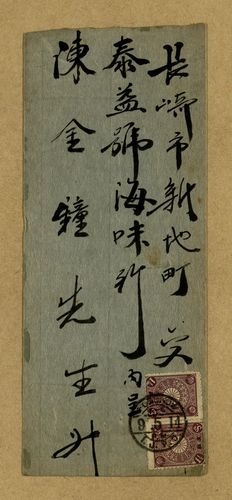 長崎市新地町 交
泰益號海味行 内呈
陳金鐘先生升
9.5.11